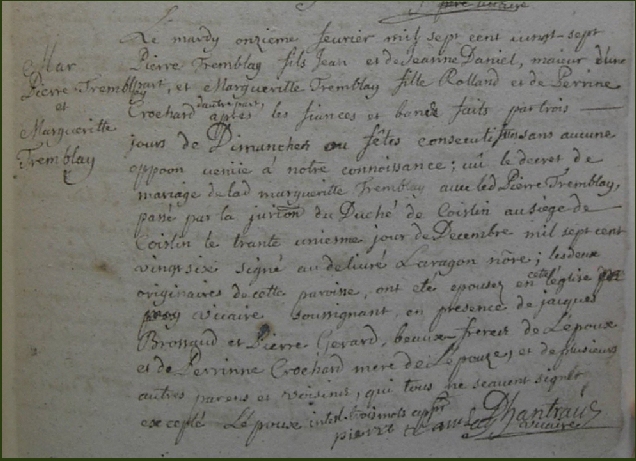 Mar
Pierre Tremblay
et
Margueritte
Tremblay
Le mardy onzieme feurier mil sept cent uingt-sept
Pierre Tremblay fils Jean et de Jeanne Daniel, maieur d'une
part, et Margueritte Tremblay fille Rolland et de Perrine
Crochard d'autre part, après les fiances et bands faits par trois
jours de Dimanches ou fêtes consecutifs sans aucune
oppoon venüe à notre connoissance; uü le decret de
mariage de lad margueritte Tremblay auec led Pierre Tremblay,
passé par la jurion du Duché de Coislin au siège de
Coislin le trante unieme jour de Decembre mil sept cent
vingt six signé au deliuré Laragon nôre; les deux
originaires de cette paroisse, ont eté epousez en cette église
uicaire soussignant, en presence de jacques
Brossaud et Pierre Gerard, beaux freres de L'epoux
et de Perrinne Crochard mere de L'epouze, et de plusieurs
autres parens et voisins, qui tous ne scauent signer
excepté L'epoux interl. trois mots appr
pierre Dhantraut
uicaire